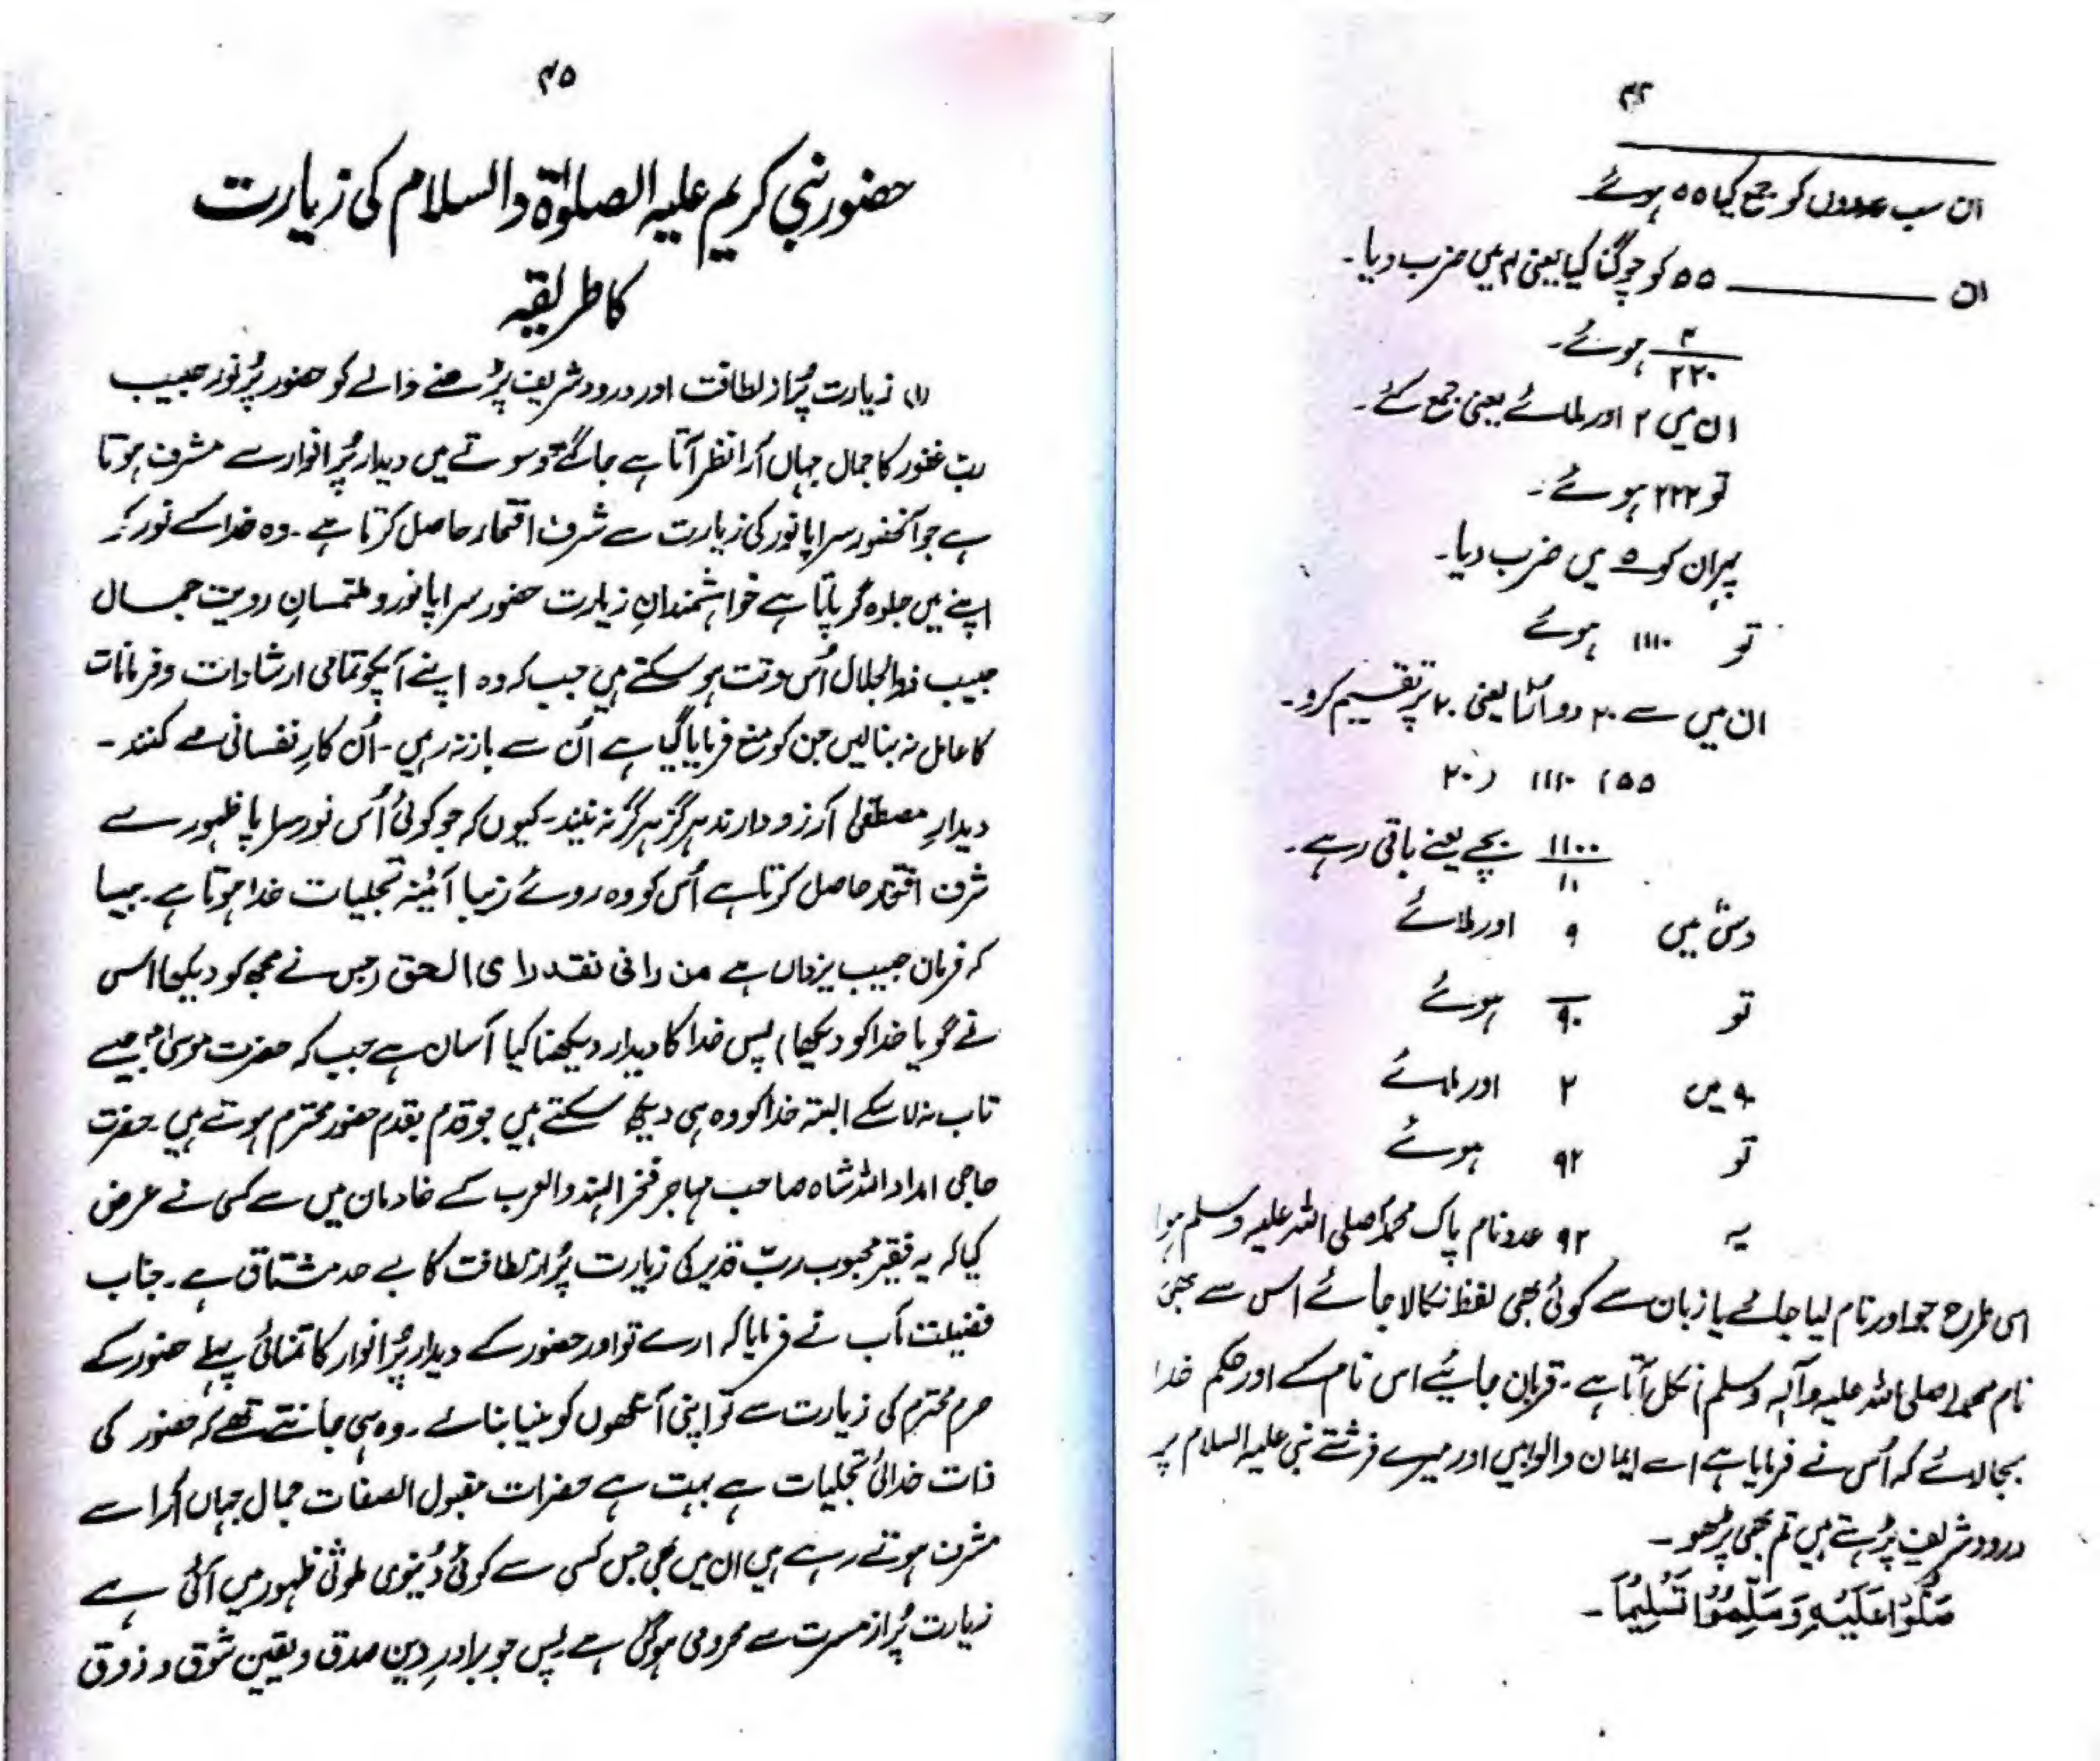 ۴۴
ان سب عددوں کو جمع کیا ۵۵ ہوئے
ان ــــــــ ۵۵ کو چوگنا کیا یعنی ۴ میں ضرب دیا۔
۴
۲۲۰ ہوئے۔
ان میں ۲ اور ملائے یعنی جمع کئے۔
تو ۲۲۲ ہوئے۔
پھر ان کو ۵ میں ضرب دیا۔
تو ۱۱۱۰ ہوئے
ان میں سے ۲۰ دو اڑایا یعنی ۲۰ پر تقسیم کرو۔
۲۰) ۱۱۱۰ (۵۵
۱۱۰۰
۱۰ بچے یعنے باقی رہے۔
دس میں ۹ اور ملائے
تو ۹۰ ہوئے
۹۰ میں ۲ اور ملائے
تو ۹۲ ہوئے
یہ ۹۲ عدد نام پاک محمدؐ صلی اللہ علیہ وسلم ہوا
اسی طرح جو اور نام لیا جائے یا زبان سے کوئی بھی لفظ نکالا جائے اس سے بھی
نام محمد (صلی اللہ علیہ وآلہ وسلم) نکل آتا ہے۔ قربان جائیے اس نام کے اور حکم خدا
بجا لائے کہ اُس نے فرمایا ہے اے ایمان والو میں اور میرے فرشتے نبی علیہ السلام پر
درود شریف پڑہتے ہیں تم بھی پڑھو۔
صَلُّوْا عَلَیْہِ وَسَلِّمُوْا تَسْلِیْمًا۔
۴۵
حضور نبی کریم علیہ الصلوٰۃ والسلام کی زیارت
کا طریقہ
(۱) زیارت پُر از لطافت اور درود شریف پڑھنے والے کو حضور پُر نور حبیب
ربّ غفور کا جمال جہاں آرا نظر آتا ہے جاگتے و سوتے میں دیدار پُر انوار سے مشرف ہوتا
ہے جو آنحضور سراپا نور کی زیارت سے شرف افتخار حاصل کرتا ہے۔ وہ خدا کے نور کو
اپنے میں جلوہ گر پاتا ہے خواہشمندانِ زیارت حضور سراپا نور و ملتمسانِ رویت جمال
حبیب ذوالجلال اُس وقت ہو سکتے ہیں جب کہ وہ اپنے آپکو تمامی ارشادات و فرمانات
کا عامل نہ بنالیں جن کو منع فرمایا گیا ہے اُن سے باز نہ رہیں۔ اُن کارِ نفسانی مے کنند۔
دیدارِ مصطفٰی آرزو دارند ہرگز ہرگز نہ بیند۔ کیوں کہ جو کوئی اُس نور سراپا ظہور سے
شرف افتخار حاصل کرتا ہے اُس کو وہ روئے زیبا آئینہ تجلیات خدا ہوتا ہے۔ جیسا
کہ فرمان حبیب یزداں ہے من رانی فقد رای الحق (جس نے مجھ کو دیکھا اس
نے گویا خدا کو دیکھا) پس خدا کا دیدار دیکھنا کیا آسان ہے جب کہ حضرت موسیٰؑ جیسے
تاب نہ لا سکے البتہ خدا کو وہ ہی دیکھ سکتے ہیں جو قدم بقدم حضور محترم ہوتے ہیں۔ حضرت
حاجی امداد اللہ شاہ صاحب مہاجر فخر الہند والعرب کے خادمان میں سے کسی نے عرض
کیا کہ یہ فقیر محبوب ربّ قدیر کی زیارت پُر از لطافت کا بے حد مشتاق ہے۔ جناب
فضیلت مآب نے فرمایا کہ ارے تو اور حضور کے دیدار پُر انوار کا تمنائی پہلے حضور کے
حرم محترم کی زیارت سے تو اپنی آنکھوں کو بینا بنائے۔ وہ ہی جانتے تھے کہ حضور کی
ذات خدائی تجلیات ہے بہت ہے حضرات مقبول الصفات جمال جہاں آرا سے
مشرف ہوتے رہے ہیں ان میں بھی جس کسی سے کوئی دُنیوی ملوثی ظہور میں آئی ہے
زیارت پُر از مسرت سے محرومی ہو گئی ہے پس جو برادرِ دین صدق و یقین شوق و ذوق